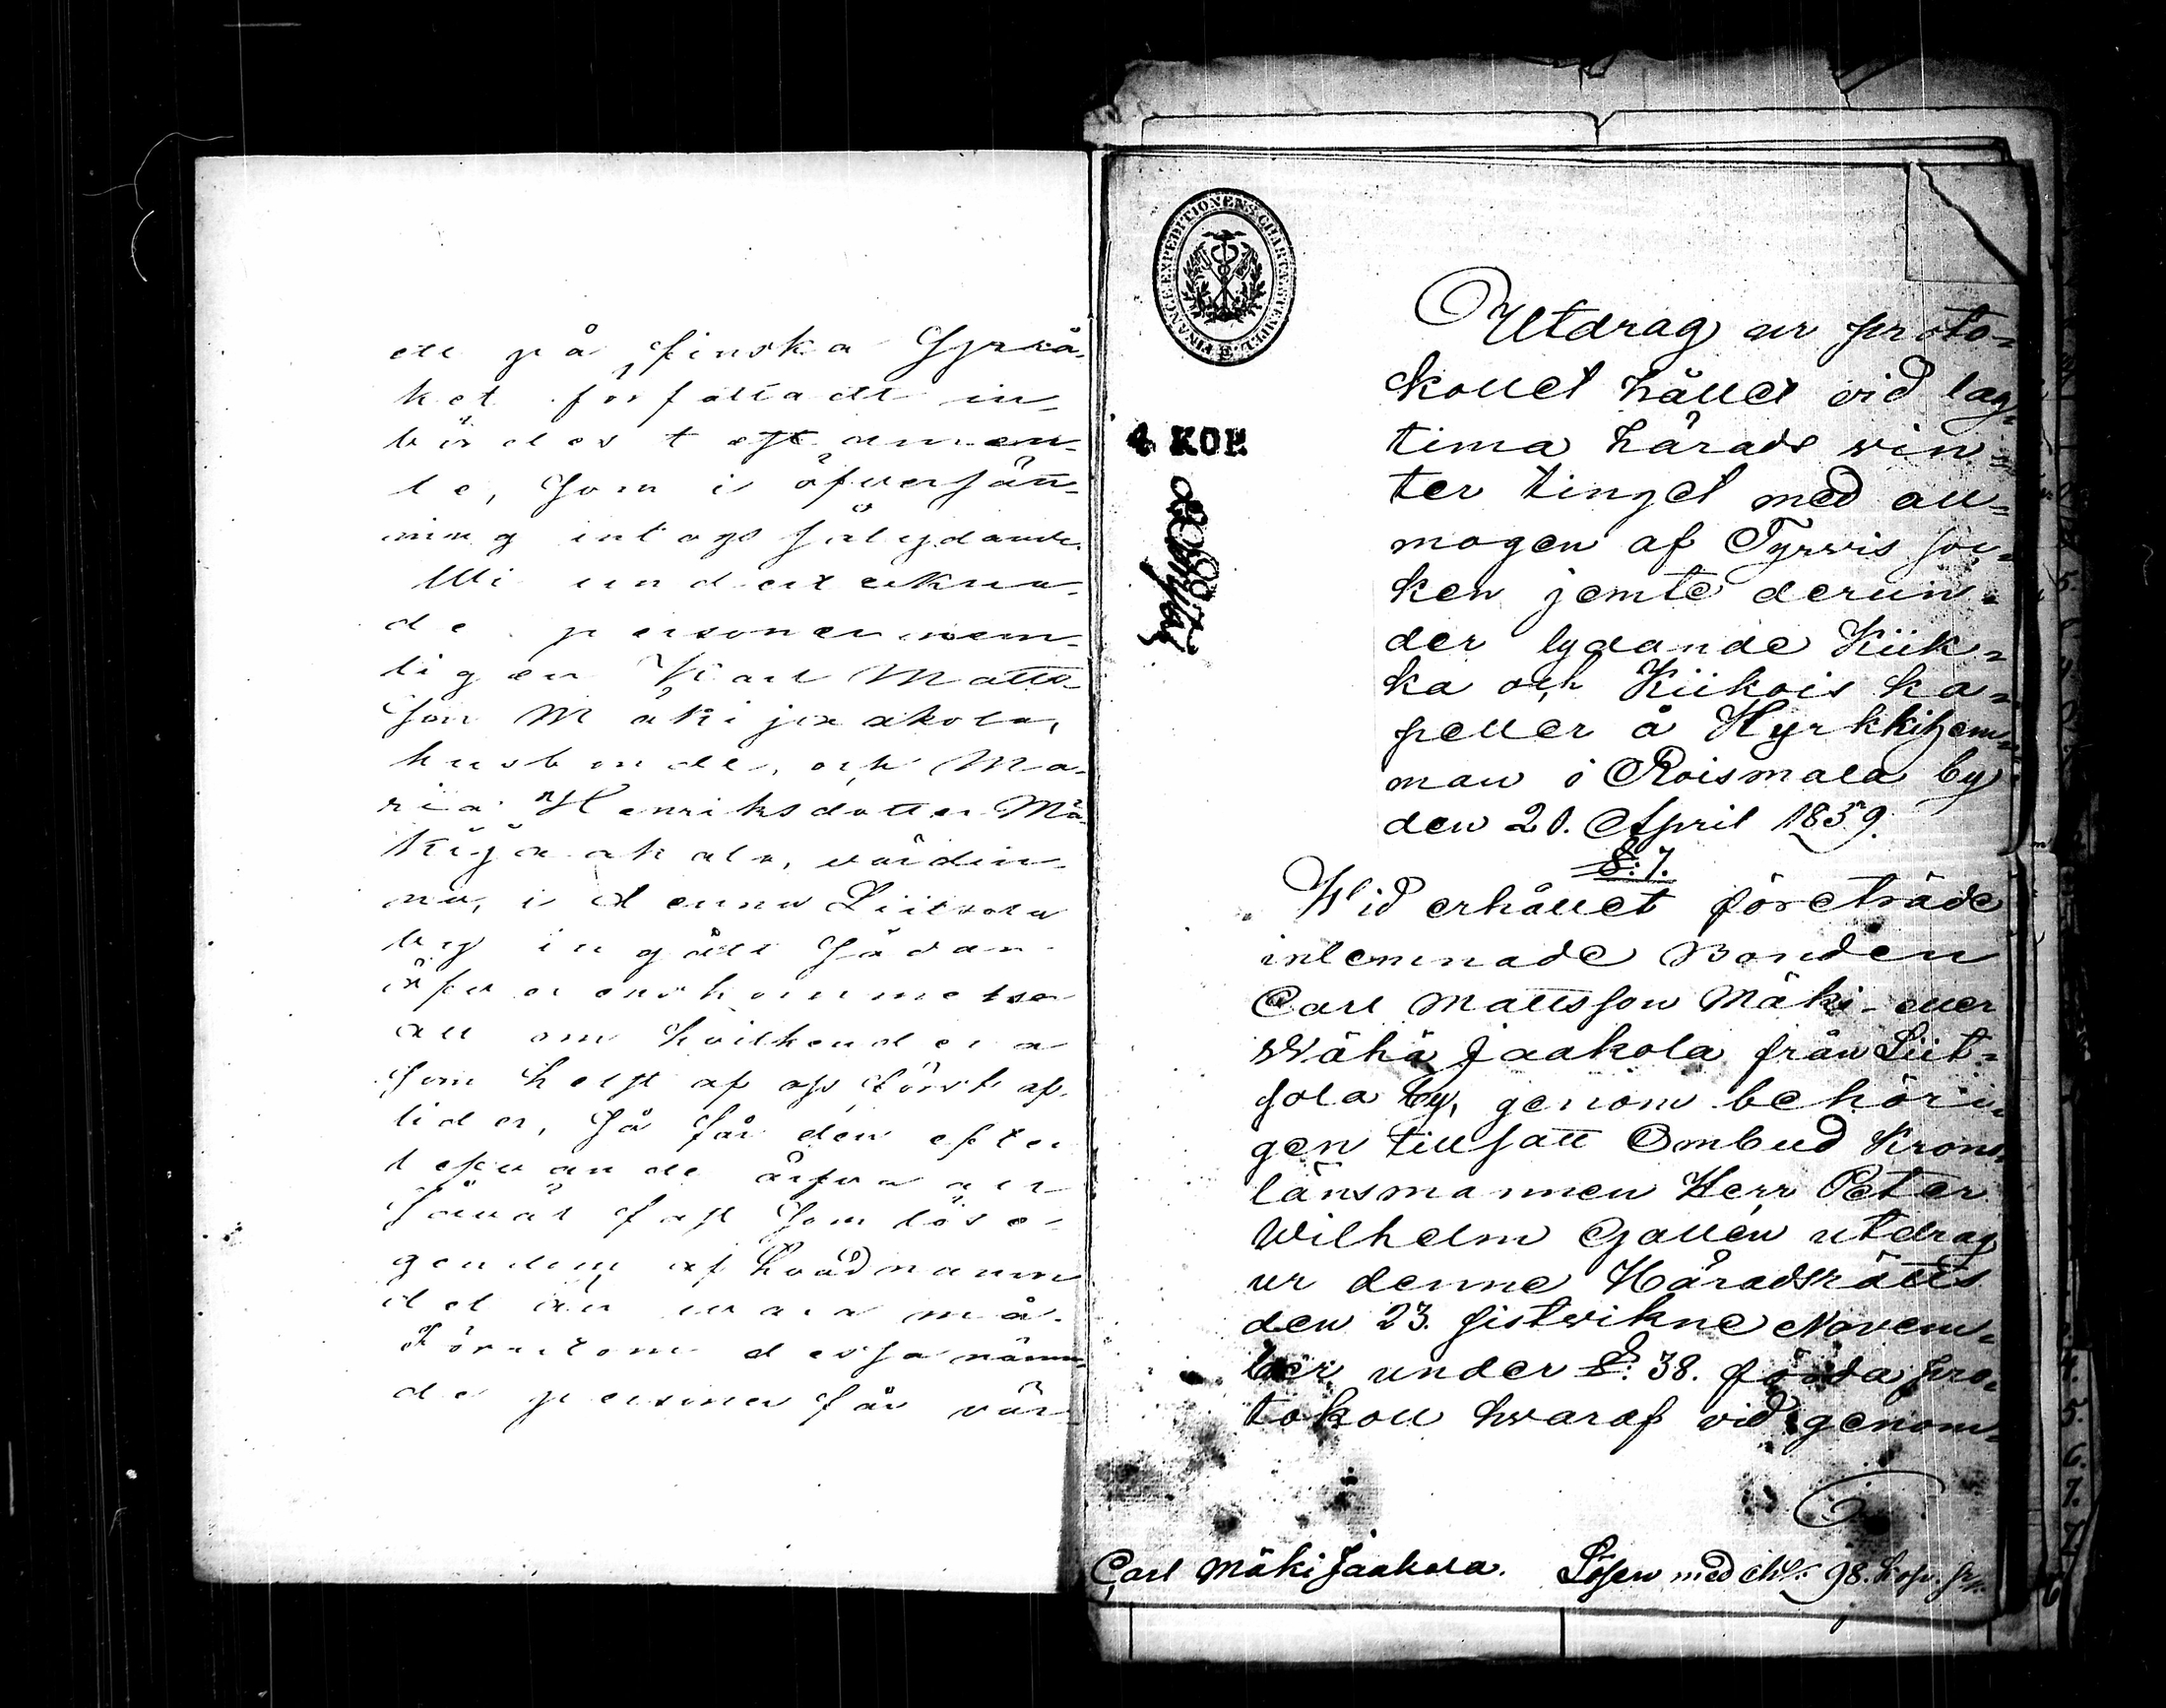 de på finska Språ-
ket författade in-
bördes testamen-
te, Som i öfversätt-
ning intogs Sålydande.
Wi undertekna-
de personer nem-
ligen Karl Matts-
Son Mäkijaakola,
husbonde, och Ma-
ria Henriksdotter Mä-
kijaakola, värdin-
na, i denna Liitsola
by ingått Sådan
öfverenskommelse
att om hvilkendera
Som helst af oss först af-
lider, Så får den efter
lefvande ärfva all
Såväl fast Som löse-
gendom af hvad namn
det än vara må.
Förutom dessa nämn-
de personer får vår
FINANCE EXPEDITIONENS CHARTÆ STEMPEL
4 KOP.
Utdrag ur proto-
kollet hållet vid lag-
tima härads vin-
ter tinget med all-
mogen af Tyrvis soc-
ken jemte derun-
der lydande Kiik-
ka och Kiikois ka-
peller å Hyrkkihem-
man i Roismala by
den 20. April 1859.
§: 7.
Wid erhållet företräde
inlemnade Bonden
Carl Mattsson Mäki- eller
Wähä Jaakola från Liit-
sola by, genom behöri-
gen tillsatt Ombud Krono
länsmannen Herr Peter
Wilhelm Gallén utdrag
ur denne Häradsrätts
den 23. sistvikne Novem-
ber under §: 38. förda pro-
tokoll hvaraf vid genom-
Carl Mäki Jaakola. Lösen med 98. kop. Sr.